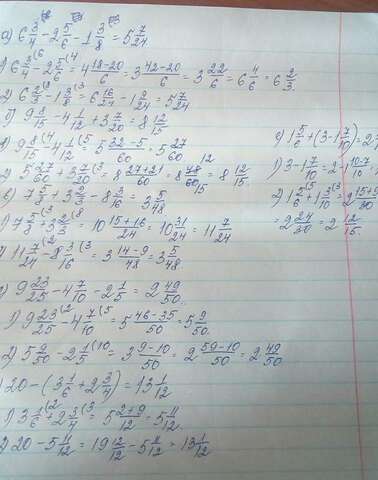 а) 6 3/4 − 2 5/6 − 1 3/8 = 5 7/24
6 3/4 − 2 5/6 = 4 (18−20)/6 = 3 (42−20)/6 = 3 22/6 = 6 4/6 = 6 2/3.
2) 6 2/3 − 1 3/8 = 6 16/24 − 1 9/24 = 5 7/24
б) 9 8/15 − 4 1/12 + 3 7/20 = 8 12/15
9 8/15 − 4 1/12 = 5 (32−5)/60 = 5 27/60
2) 5 27/60 + 3 7/20 = 8 (27+21)/60 = 8 48/60 = 8 12/15.
в) 7 5/8 + 3 2/3 − 8 3/16 = 3 5/48
1) 7 5/8 + 3 2/3 = 10 (15+16)/24 = 10 31/24 = 11 7/24
2) 11 7/24 − 8 3/16 = 3 (14−9)/48 = 3 5/48
9 23/25 − 4 7/10 − 2 1/5 = 2 49/50.
1) 9 23/25 − 4 7/10 = 5 (46−35)/50 = 5 9/50.
2) 5 9/50 − 2 1/5 = 3 (9−10)/50 = 2 (59−10)/50 = 2 49/50
20 − (3 1/6 + 2 3/4) = 13 1/12
1) 3 1/6 + 2 3/4 = 5 (2+9)/12 = 5 11/12.
2) 20 − 5 11/12 = 19 12/12 − 5 11/12 = 13 1/12
е) 1 5/6 + (3 − 1 7/10) = 2
1) 3 − 1 7/10 = 2 − 1 (10−7)/10
2) 1 5/6 + 1 3/10 = 2 (15+9)/30
= 2 24/30 = 2 12/15